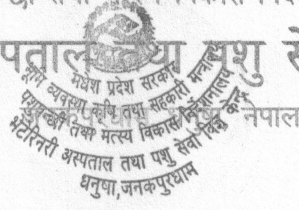 पताल तथा पशु से
मधेश प्रदेश सरकार
भूमि व्यवस्था, कृषि तथा सहकारी मन्त्रालय
पशुपन्छी तथा मत्स्य विकास निर्देशनालय
भेटेरिनरी अस्पताल तथा पशु सेवा विज्ञ केन्द्र
धनुषा, जनकपुरधाम
नेपाल